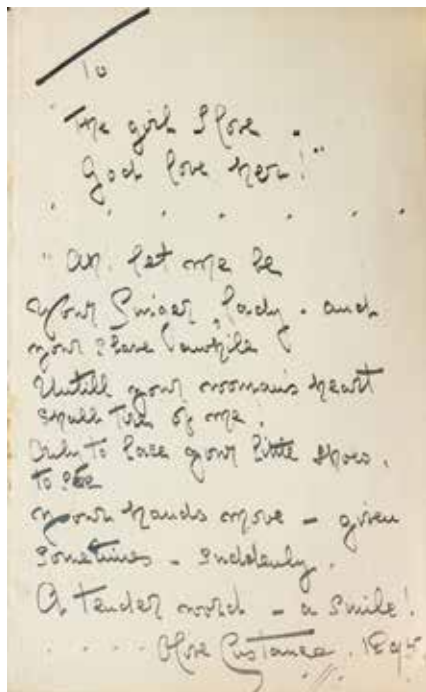 To
"The girl I love .
God love her!"
. . . . . . .
"Ah. let me be
Your Singer, lady. and
your slave awhile
Untill your woman's heart
shall tire of me.
Only to lace your little shoes.
to see
your hands move – given
sometimes – suddenly.
A tender word – a smile!
. . . . Olive Custance.